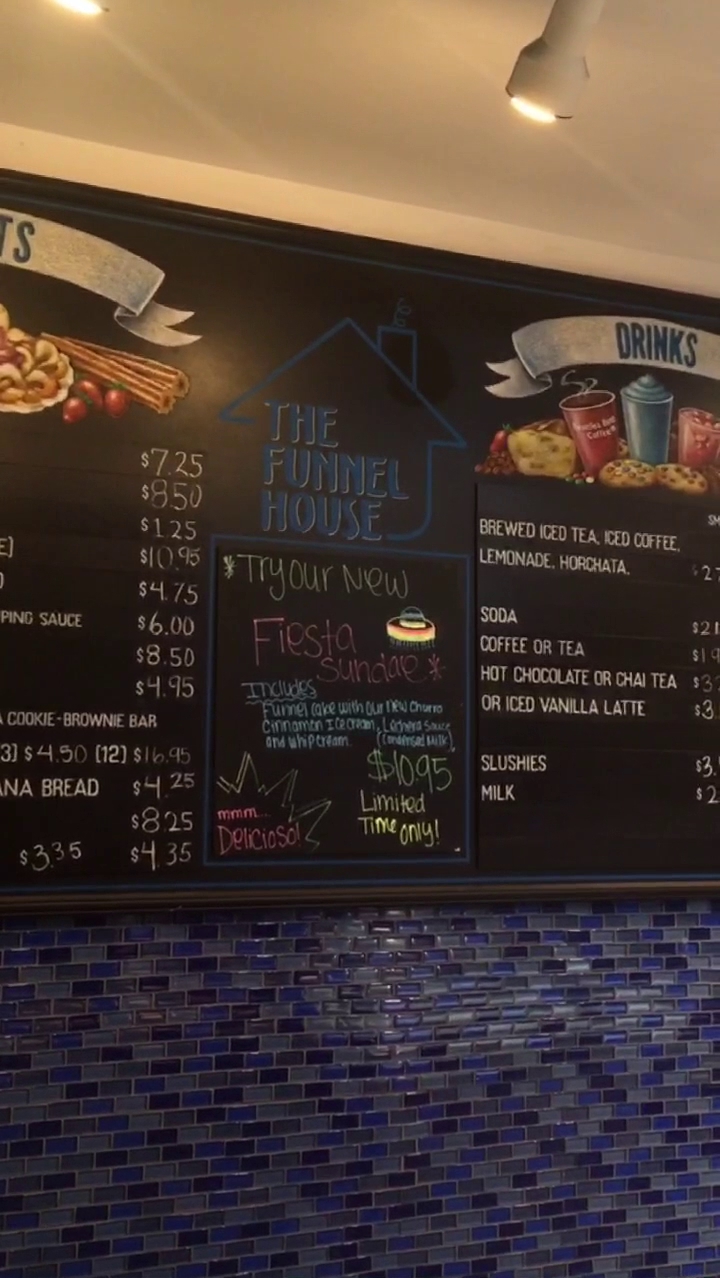 TS
$7.25
$8.50
$1.25
E] $10.95
$4.75
PING SAUCE $6.00
$8.50
$4.95
A COOKIE-BROWNIE BAR
3] $4.50 [12] $16.95
ANA BREAD $4.25
$8.25
$3.35 $4.35
THE
FUNNEL
HOUSE
*Try our New
Fiesta
Sundae*
Includes
Funnel cake with our new Churro
Cinnamon Ice cream, Lechera Sauce
and whip cream. (Condensed Milk)
$10.95
Limited
Time only!
mmm...
Delicioso!
DRINKS
Coffee
SM
BREWED ICED TEA, ICED COFFEE,
LEMONADE, HORCHATA, $2
SODA $2
COFFEE OR TEA $1
HOT CHOCOLATE OR CHAI TEA $3
OR ICED VANILLA LATTE $3.
SLUSHIES $3.
MILK $2